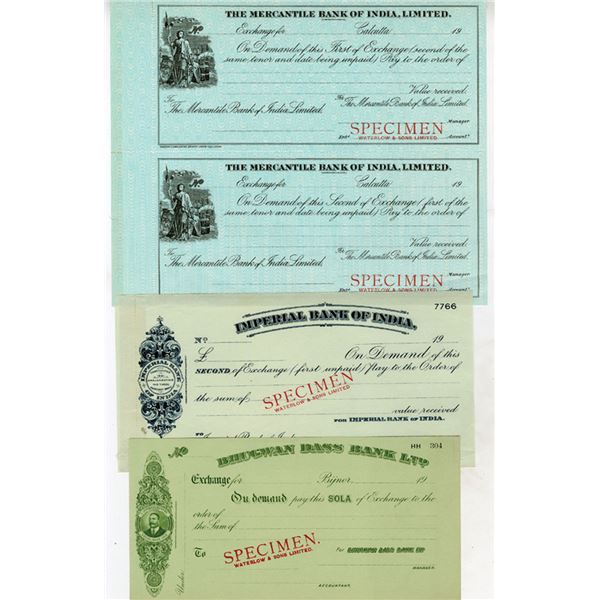 THE MERCANTILE BANK OF INDIA, LIMITED.
No
Exchange for Calcutta 19
On Demand of this First of Exchange (second of the
same tenor and date being unpaid) Pay to the order of
Value received:
To For
The Mercantile Bank of India Limited. The Mercantile Bank of India Limited.
Manager
SPECIMEN
WATERLOW & SONS LIMITED.
Entd. Accountt.
THE MERCANTILE BANK OF INDIA, LIMITED.
No
Exchange for Calcutta 19
On Demand of this Second of Exchange (first of the
same tenor and date being unpaid) Pay to the order of
Value received:
To For
The Mercantile Bank of India Limited. The Mercantile Bank of India Limited.
Manager
SPECIMEN
WATERLOW & SONS LIMITED.
Entd. Accountt.
7766
IMPERIAL BANK OF INDIA,
No. 19
£ On Demand of this
SECOND of Exchange (first unpaid) Pay to the Order of
IMPERIAL BANK OF INDIA
the sum of
SPECIMEN
WATERLOW & SONS LIMITED
value received
FOR IMPERIAL BANK OF INDIA.
BHUGWAN DASS BANK LTD.
No HH 304
Exchange for Bijnor 19
On demand pay this SOLA of Exchange to the
order of
the Sum of
SPECIMEN.
WATERLOW & SONS LIMITED.
To For BHUGWAN DASS BANK LTD
MANAGER.
ACCOUNTANT.
Under